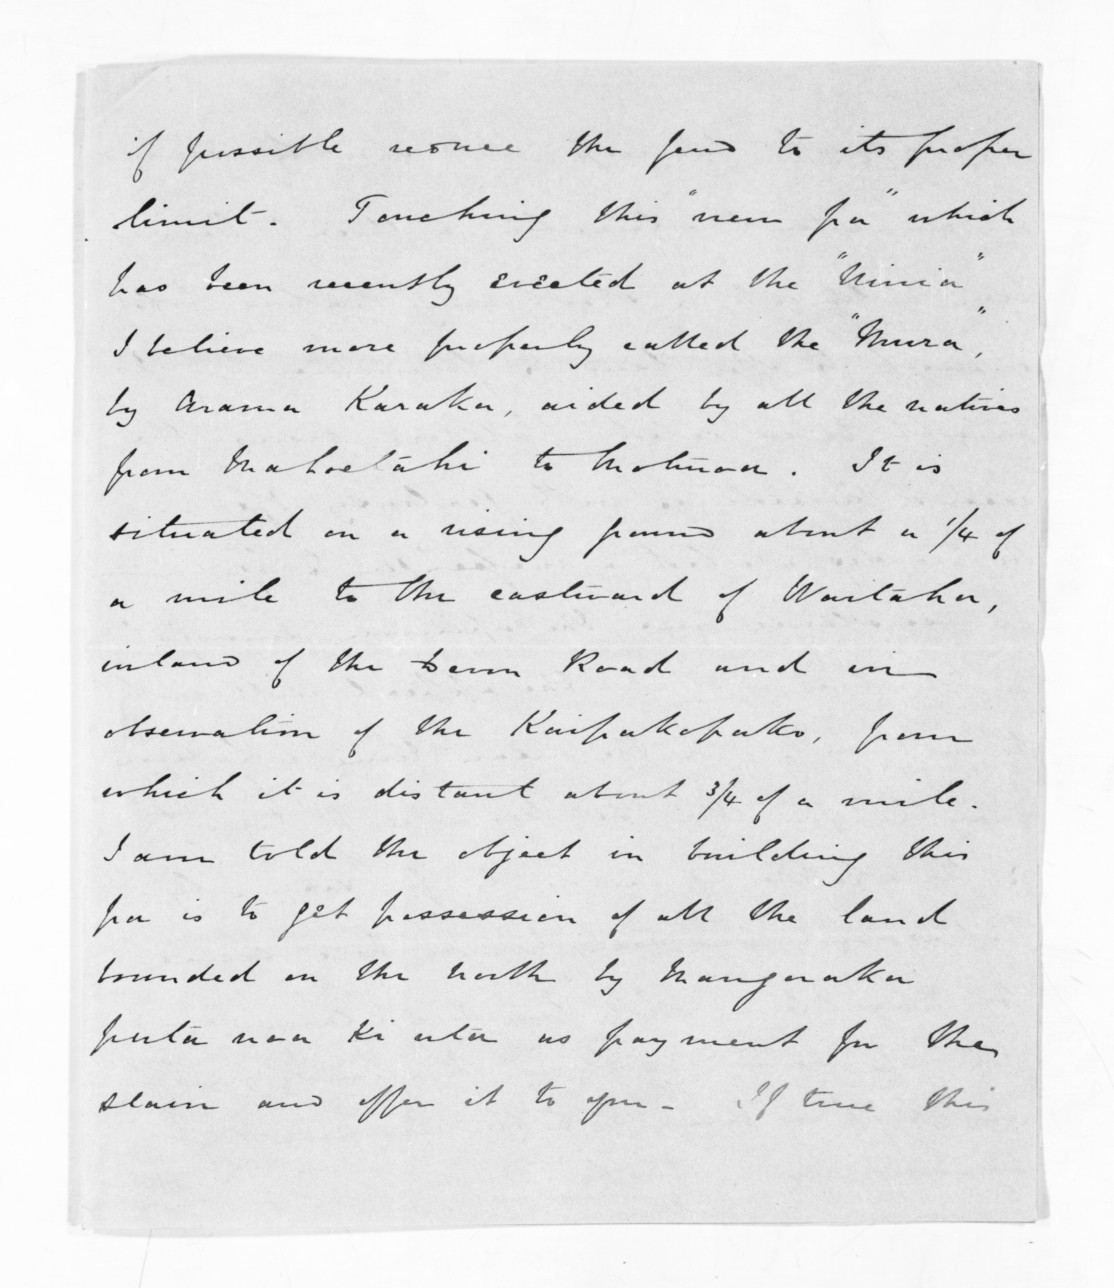 if possible reduce the feud to its proper
limit. Touching this "new pa" which
has been recently erected at the "Ninia"
I believe more properly called the "Mura",
by Arama Karaka, aided by all the natives
from Mahoetahi to Motunoa. It is
situated on a rising ground about a 1/4 of
a mile to the eastward of Waitaha,
inland of the Devon Road and in
observation of the Kaipakopako, from
which it is distant about 3/4 of a mile.
I am told the object in building this
pa is to get possession of all the land
bounded on the north by Mangaraka
puta noa ki uta as payment for the
slain and offer it to you - If true this